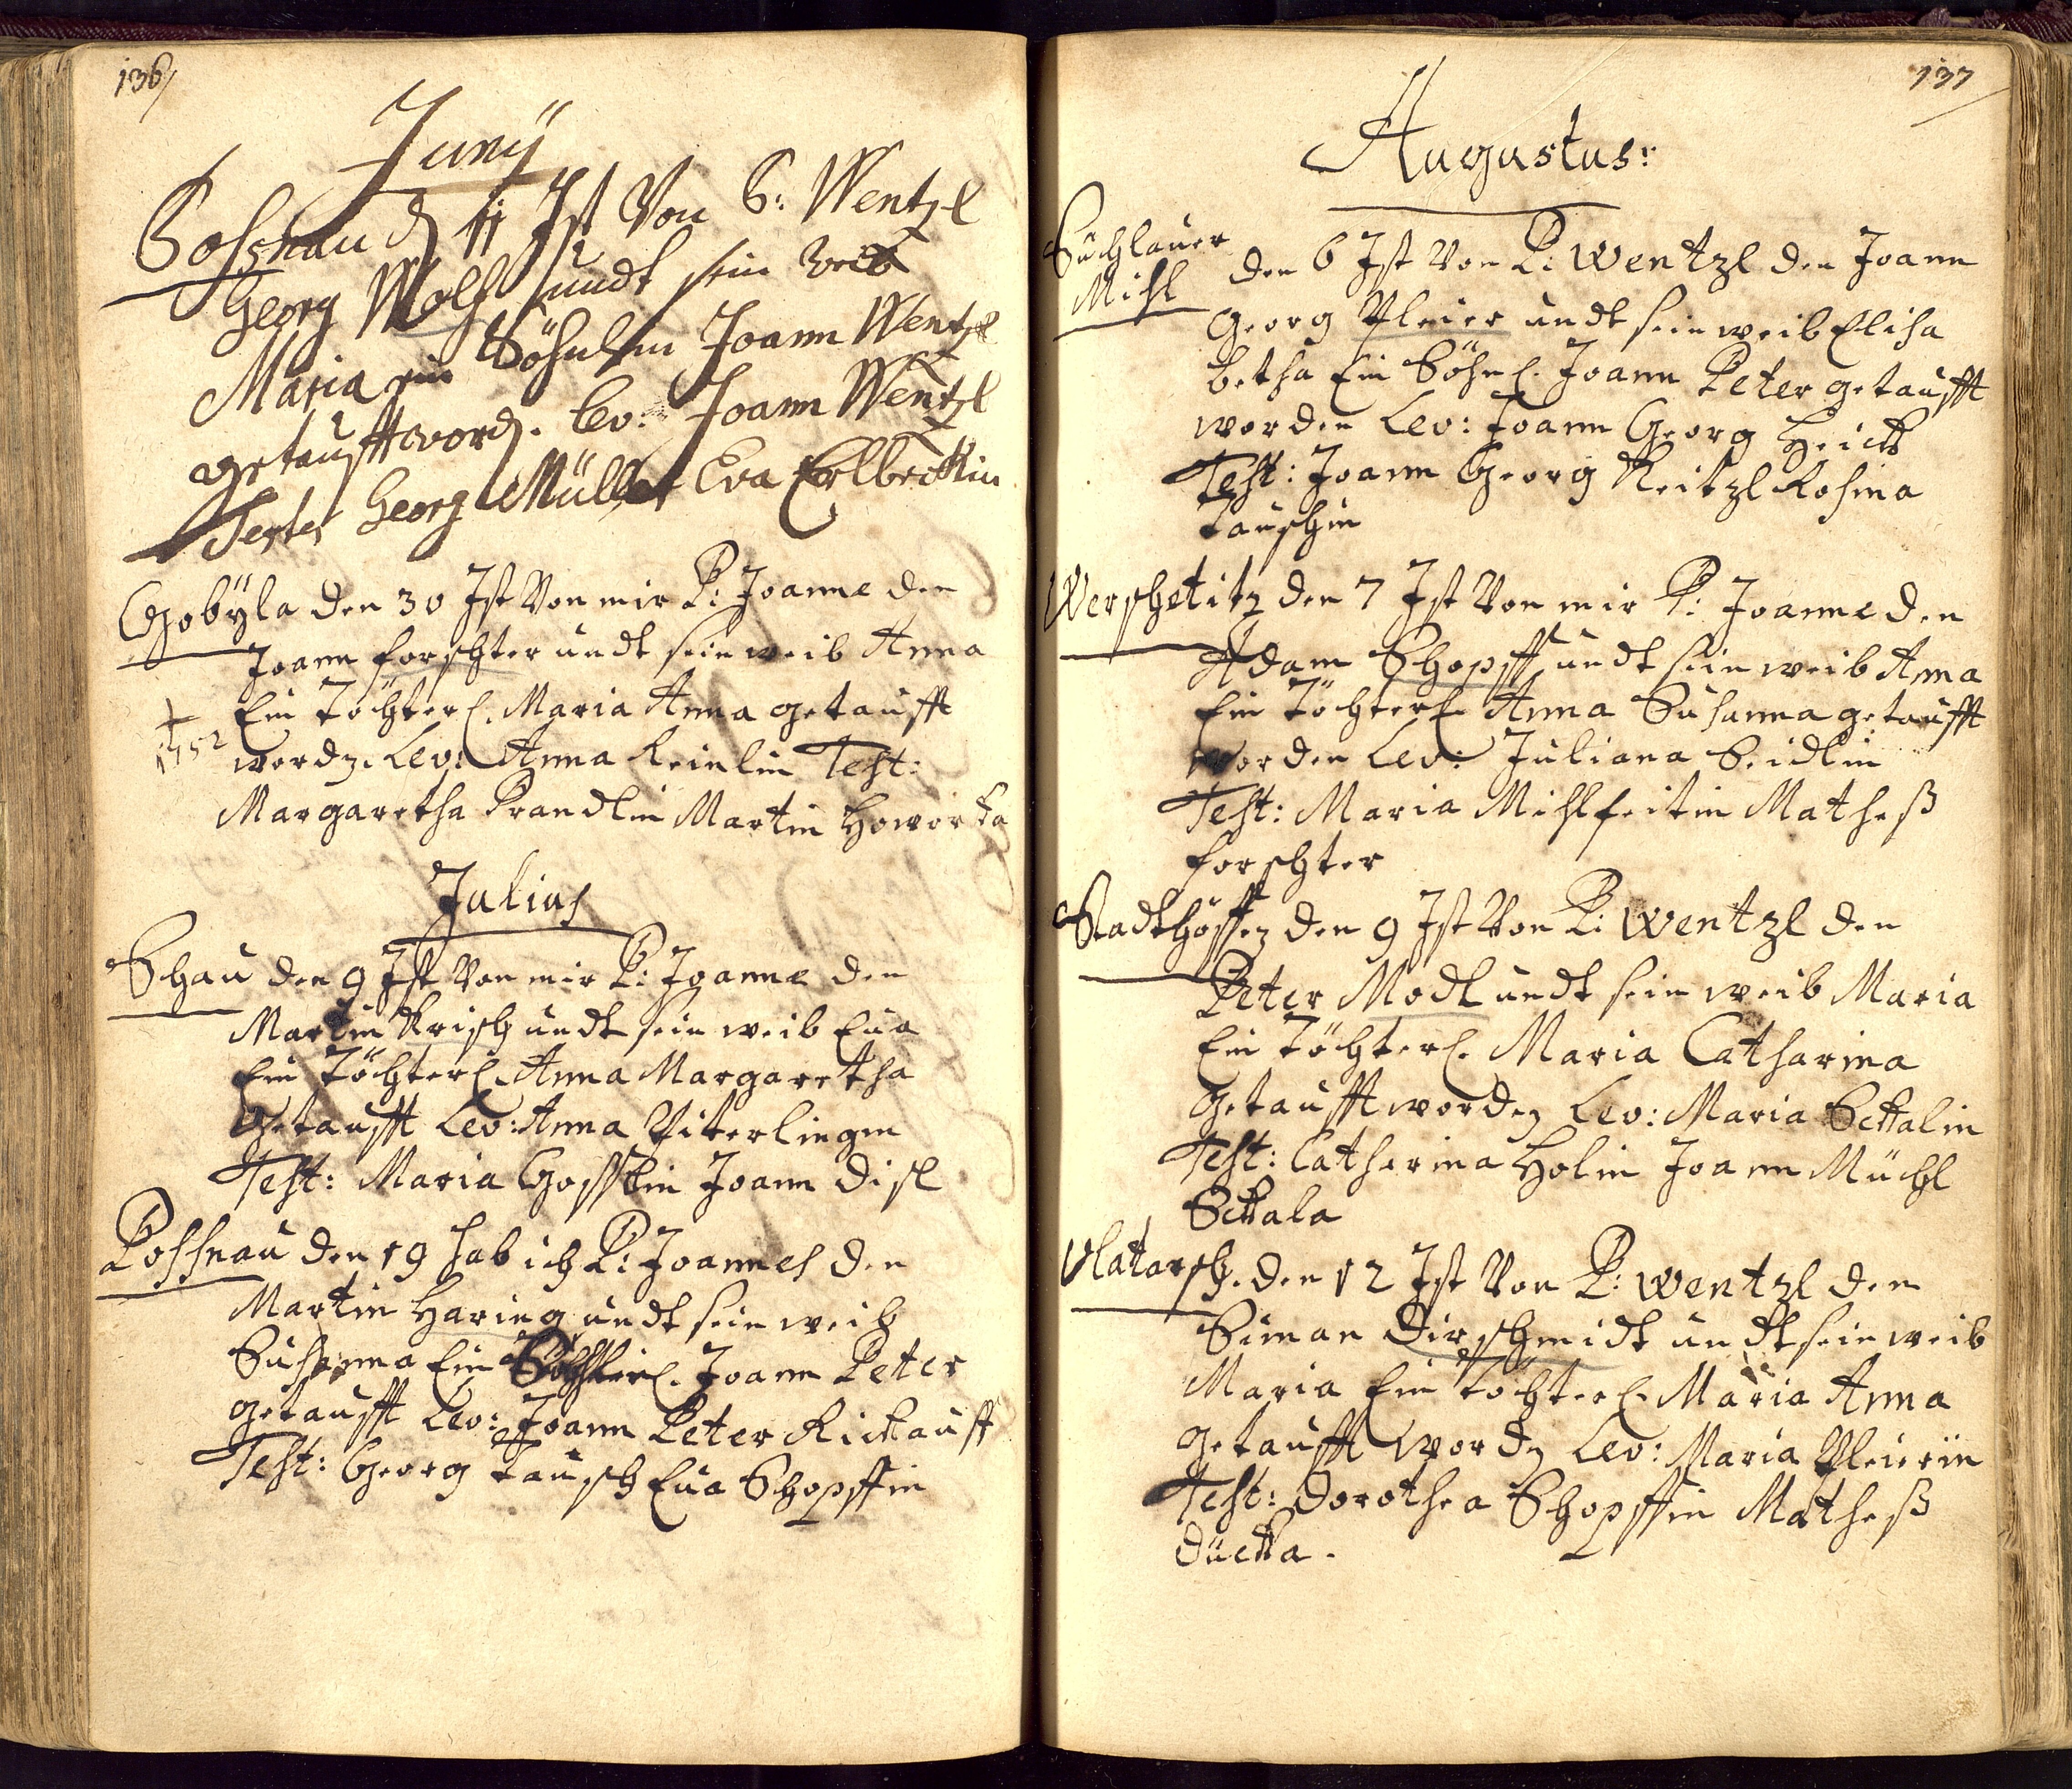 136
Junÿ
Poschau d. 11 Ist Von P: Wentzl
Georg Wolf undt sein weib
Maria ein Söhnlein Joann Wentzl
getaufft word. Lev: Joann Wentzl
Testes Georg Müller Eva Erlbeckin
Chobÿla den 30 Ist Von mir P: Joanne den
Joann forschter undt sein weib Anna
Ein Töchterl. Maria Anna getaufft
† 1752
word. Lev: Anna Reinlin Test:
Margaretha Prandlin Martin Howorka
Julius
Schau den 9 Ist Von mir P: Joanne den
Martin Krisch undt sein weib Eua
Ein Töchterl. Anna Margaretha
Getaufft Lev: Anna Piterlingin
Test: Maria Gosslin Joann Disl
Possnau den 19 hab ich P: Joannes den
Martin Haring undt sein weib
Susanna Ein Joann Peter
getaufft Lev: Joann Peter Rickauff
Test: Georg Tausch Eua Schopffin
137
Augustus:
Suchlauer
Mihl
den 6 Ist Von P: Wentzl den Joann
Georg Pleier undt sein weib Elisa
betha Ein Söhnl. Joann Peter getaufft
worden Lev: Joann Georg Heick
Test: Joann Georg Reitzl Rosina
Tauschin
Werschetitz den 7 Ist Von mir P: Joanne den
Adam Schopff undt sein weib Anna
Ein Töchterl. Anna Susanna getaufft
worden Lev: Juliana Seidlin
Test: Maria Mihlfeitin Mathess
forschter
Stadthöffen den 9 Ist Von P: Wentzl den
Peter Modl undt sein weib Maria
Ein Töchterl. Maria Catharina
Getaufft worden Lev: Maria Sckalin
Test: Catharina Holin Joann Müchl
Sckala
Vlatarsch. den 12 Ist Von P: Wentzl den
Siman Dirschmidt undt sein weib
Maria Ein Töchterl. Maria Anna
getaufft word. Lev: Maria Pleierin
Test: Dorothea Schopffin Mathess
Ducka.